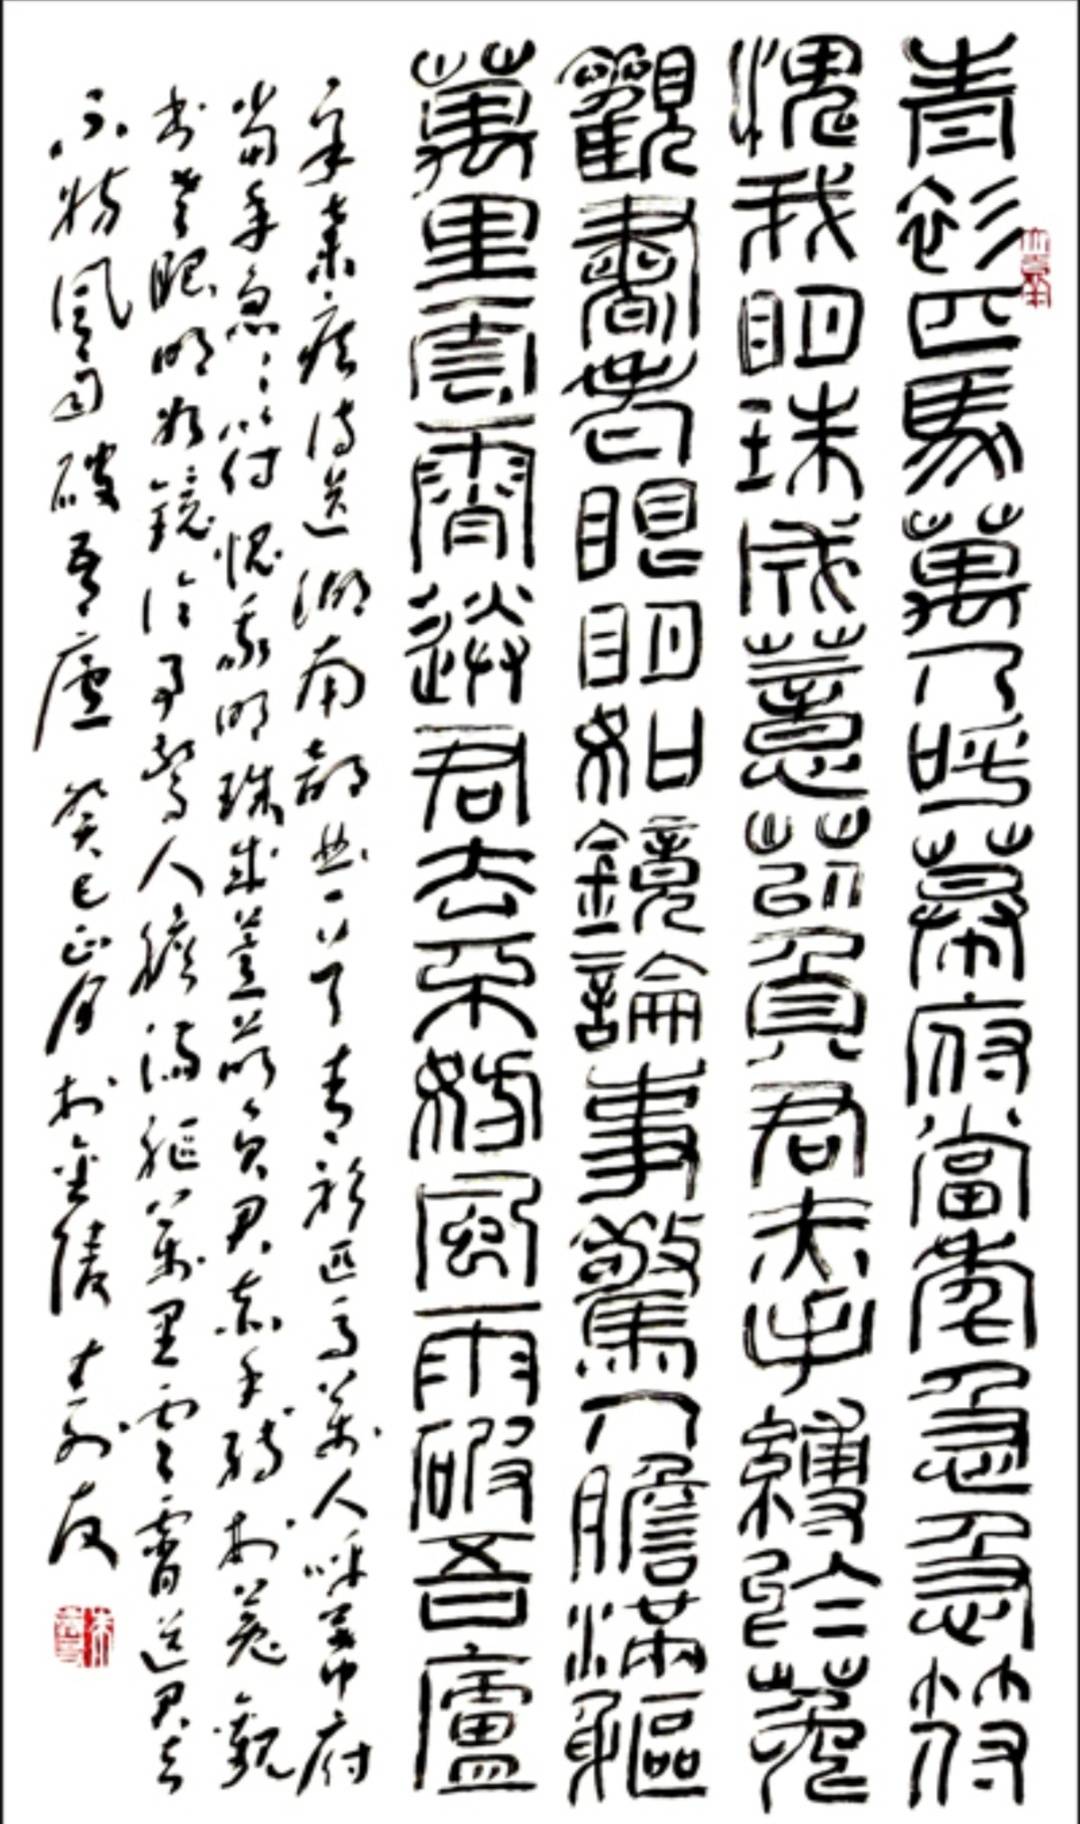 青衫匹馬萬人呼幕府當年急急符
愧我明珠成薏苡負君赤手縛於菟
觀書老眼明如鏡論事驚人膽滿軀
萬里雲霄送君去不妨風雨破吾廬
辛棄疾詩送湖南部曲一首青衫匹馬萬人呼幕府
當年急急符愧我明珠成薏苡負君赤手縛於菟觀
書老眼明如鏡論事驚人膽滿軀萬里雲霄送君去
不妨風雨破吾廬癸巳正月於金陵